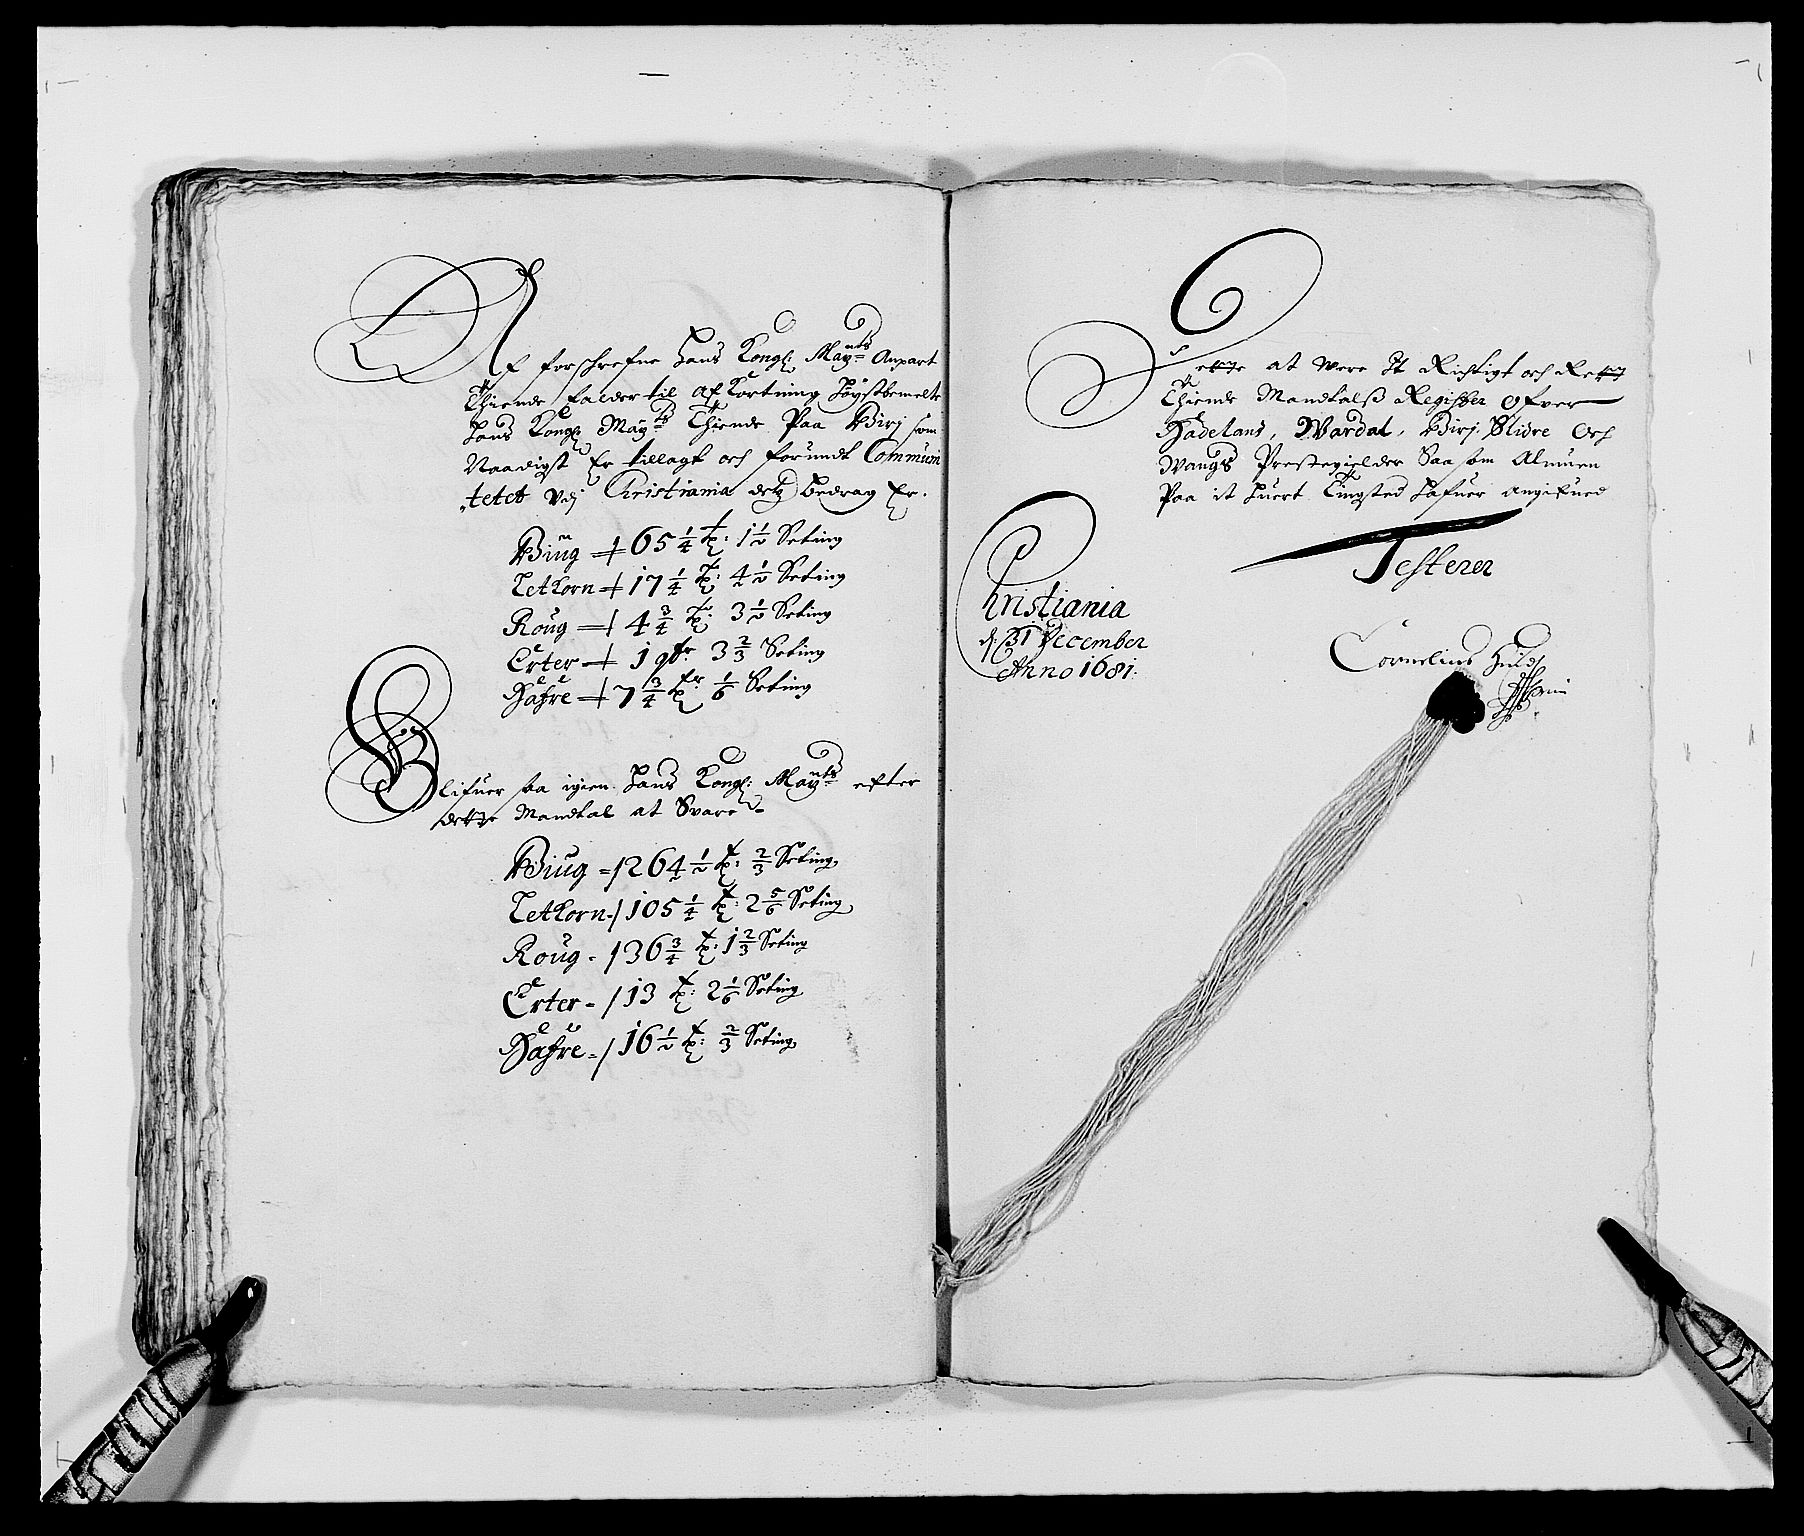 Af forschrefne Hans Kongl: Mayts Anpart
Thiende falder til afKortning Høystbemelte
Hans Kongl: Mayts Thiende Paa Birj som
Naadigst Er tillagt och forundt Communi
„tetet Vdj Christiania detz Bedrag Er.
Biug 65 1/4 tr: 1 1/2 Seting
LetKorn 17 1/4 tr: 4 1/2 Seting
Roug 4 3/4 tr: 3 1/2 Seting
Erter 1 qtr 3 2/3 Seting
Hafre 7 3/4 tr 1/6 Seting
Blifuer saa igien Hans Kongl: Mayts efter
dette Mandtal at Svare
Biug 264 1/2 tr: 2/3 Seting
LetKorn 105 1/4 tr: 2 5/6 Seting
Roug 36 3/4 tr: 1 2/3 Seting
Erter 13 tr: 2 1/6 Seting
Hafre 16 1/2 tr: 2/3 Seting
Dette at were It Richtigt och Rett
Thiende Mandtalss Register Ofver
Hadeland, Wardal, Birj. Slidre Och
Wangs Prestegielder Saa som Almuen
Paa it huert Tingsted hafuer angifued
Testerer
Christiania
d: 31 December
Anno 1681:
Cornelius